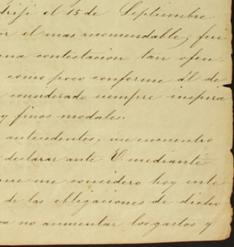 el 15 de Septiembre
or el mas recomendable, fui
una contestacion tan ofen
como poco conforme al de
considerado siempre inspira
y finos modales.
antecedentes, me encuentro
declarar ante U mediante
que me considero hoy ente
de las obligaciones de dicho
no aumentar los gastos y